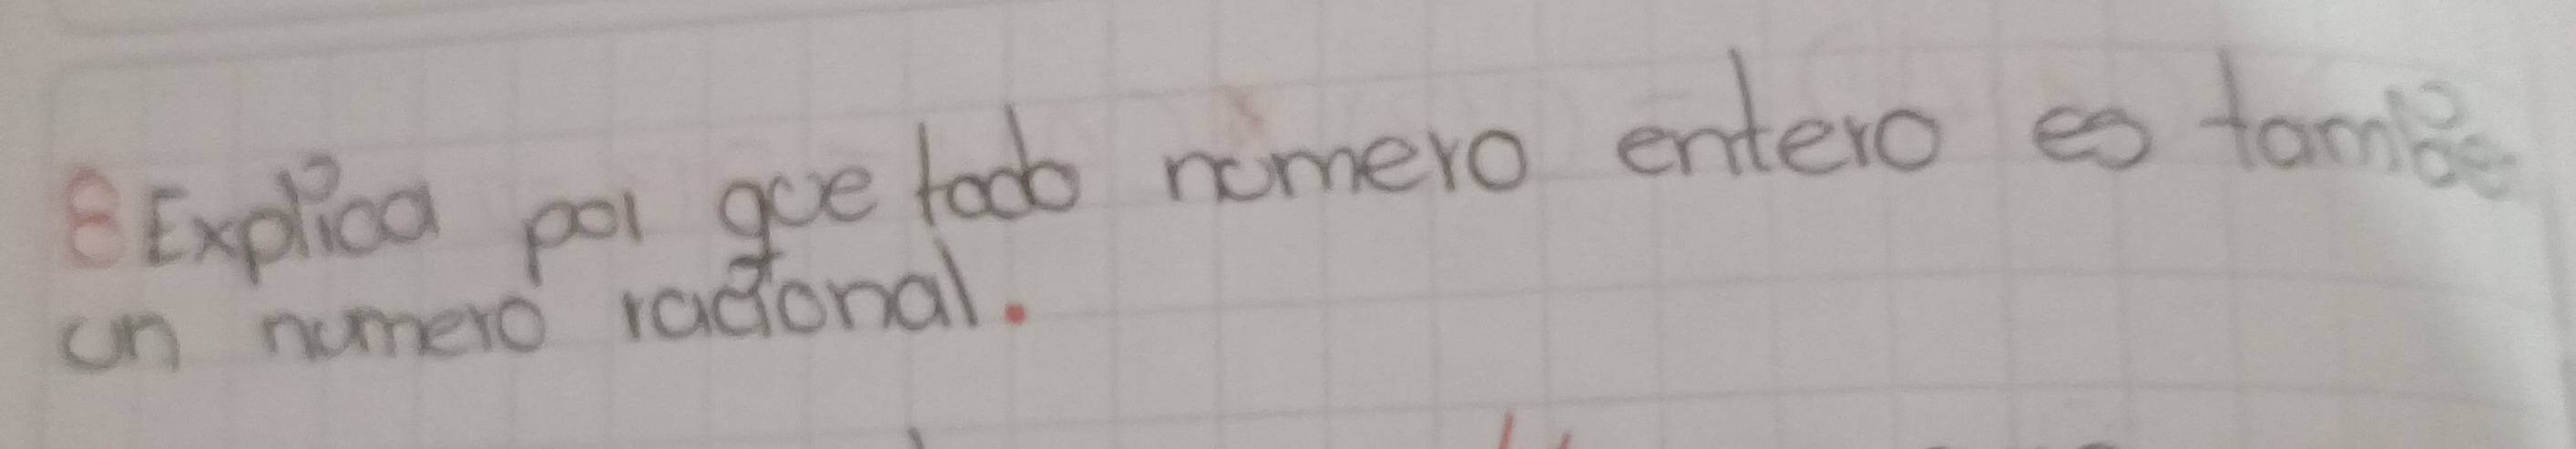 8 Explica por que todo numero entero es tambie
un numero racional.